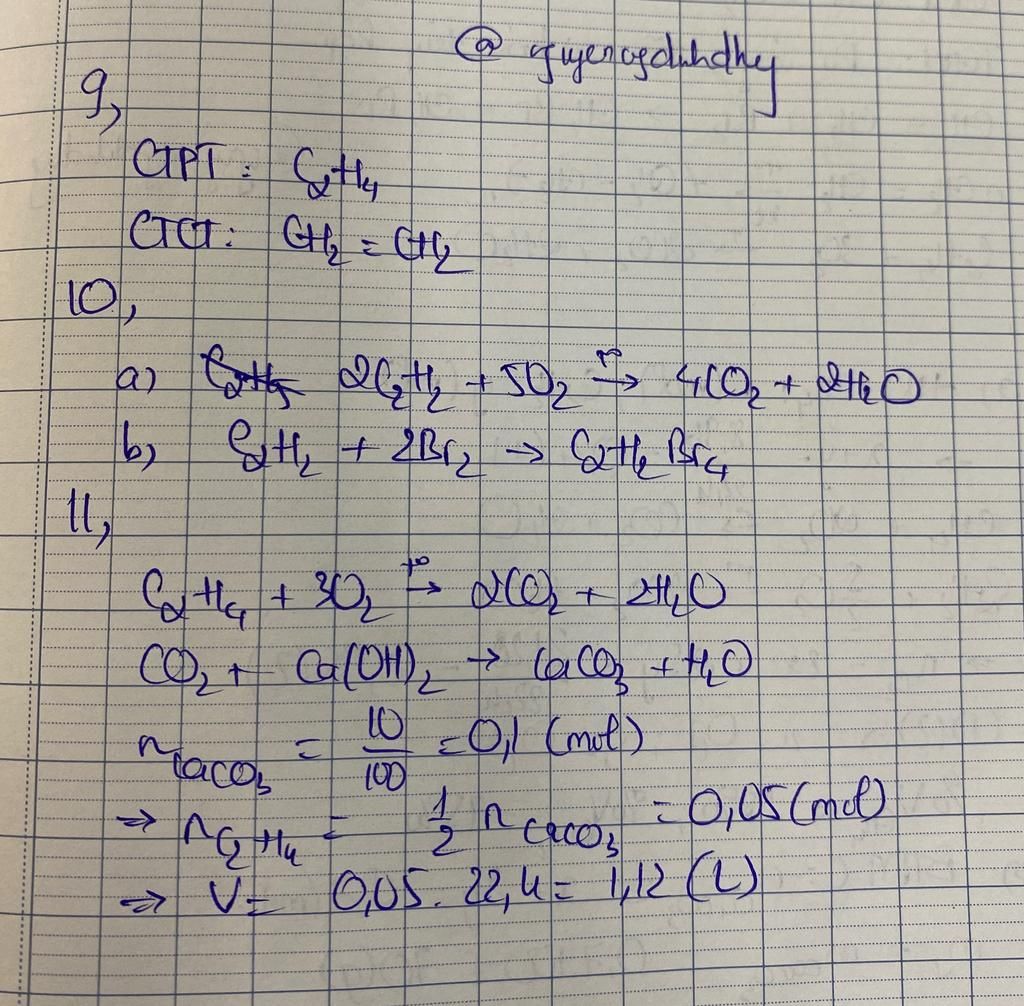 @
9,
CTPT: C₂H₄
CTCT: CH₂ = CH₂
10,
a) 2C₂H₂ + 5O₂ t°→ 4CO₂ + 2H₂O
b) C₂H₂ + 2Br₂ → C₂H₂Br₄
11,
C₂H₄ + 3O₂ t°→ 2CO₂ + 2H₂O
CO₂ + Ca(OH)₂ → CaCO₃ + H₂O
n CaCO₃ = 10/100 = 0,1 (mol)
⇒ n C₂H₄ = 1/2 n CaCO₃ = 0,05 (mol)
⇒ V = 0,05 . 22,4 = 1,12 (L)